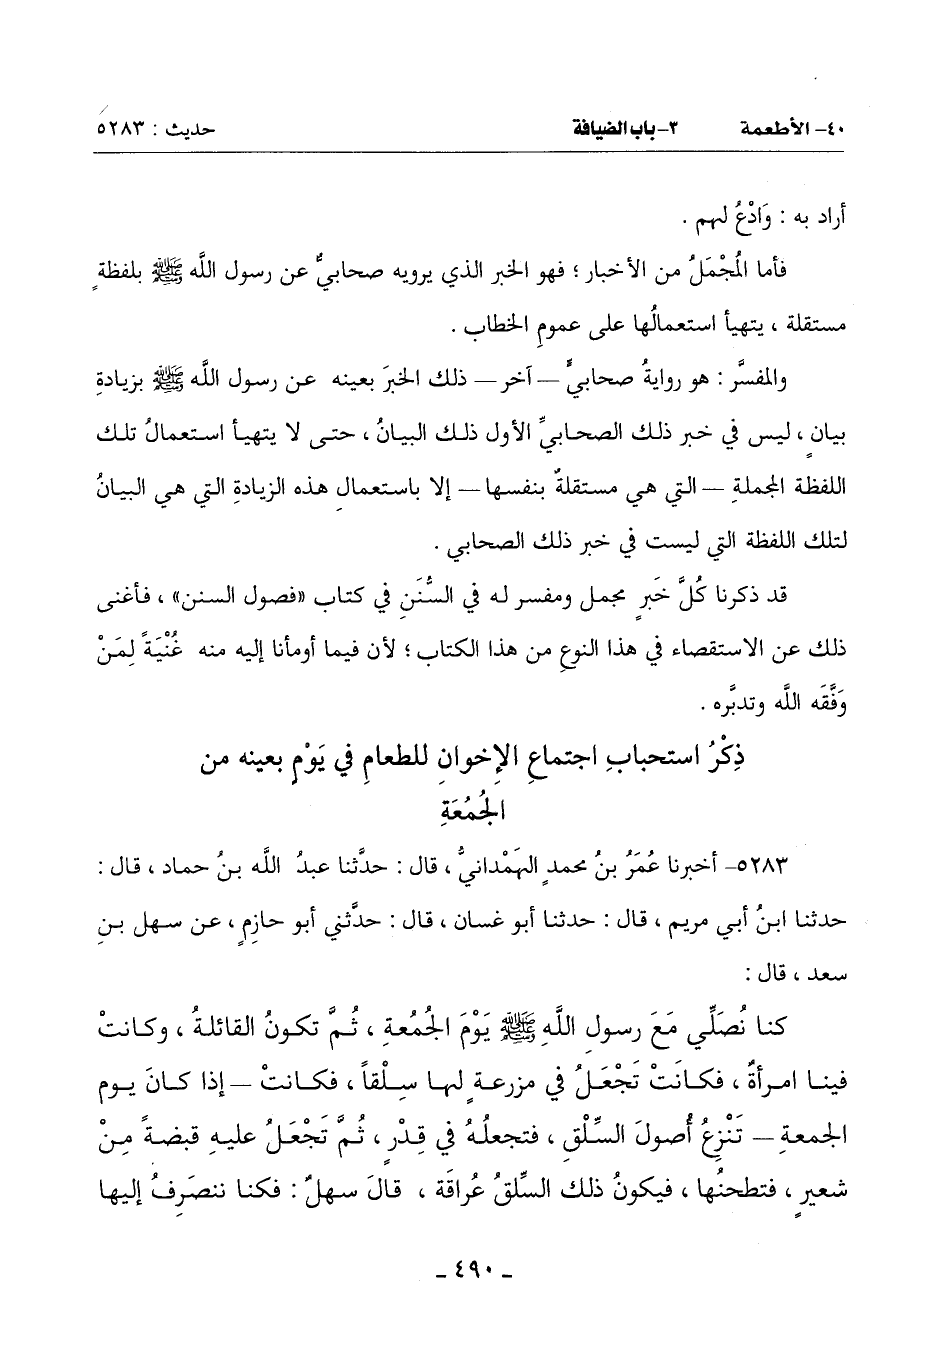 ٤٠- الأطعمة ٣- باب الضيافة حديث : ٥٢٨٣
أراد به : وَادْعُ لهم .
فأما المُجْمَلُ من الأخبار ؛ فهو الخبر الذي يرويه صحابيٌّ عن رسول اللَّه ﷺ بلفظةٍ
مستقلة ، يتهيأ استعمالُها على عمومِ الخطاب .
والمفسَّر : هو روايةُ صحابيٍّ — آخر — ذلك الخبرَ بعينه عن رسول اللَّه ﷺ بزيادةِ
بيانٍ ، ليس في خبر ذلك الصحابيِّ الأول ذلك البيانُ ، حتى لا يتهيأ استعمالُ تلك
اللفظة المجملةِ — التي هي مستقلةٌ بنفسها — إلا باستعمالِ هذه الزيادةِ التي هي البيانُ
لتلك اللفظة التي ليست في خبر ذلك الصحابي .
قد ذكرنا كُلَّ خَبرٍ مجمل ومفسر له في السُّنَنِ في كتاب «فصول السنن» ، فأغنى
ذلك عن الاستقصاء في هذا النوعِ من هذا الكتاب ؛ لأن فيما أومأنا إليه منه غُنْيَةً لِمَنْ
وَفَّقَه اللَّه وتدبَّره .
ذِكْرُ استحبابِ اجتماعِ الإخوانِ للطعامِ في يَوْمٍ بعينه من
الجُمُعَةِ
٥٢٨٣- أخبرنا عُمَرُ بنُ محمدٍ الهَمْدانيُّ ، قال : حدَّثنا عبدُ اللَّه بنُ حماد ، قال :
حدثنا ابنُ أبي مريم ، قال : حدثنا أبو غسان ، قال : حدَّثني أبو حازِمٍ ، عن سهل بنِ
سعد ، قال :
كنا نُصَلِّي مَعَ رسولِ اللَّهِ ﷺ يَوْمَ الجُمُعةِ ، ثُمَّ تكونُ القائلةُ ، وكانتْ
فينا امرأةٌ ، فكانَتْ تَجْعَلُ في مزرعةٍ لها سِلْقاً ، فكانتْ — إذا كانَ يوم
الجمعةِ — تَنْزِعُ أُصولَ السِّلْقِ ، فتجعلُهُ في قِدْرٍ ، ثُمَّ تَجْعَلُ عليهِ قبضةً مِنْ
شعيرٍ ، فتطحنُها ، فيكونُ ذلك السِّلقُ عُراقَة ، قالَ سهلٌ : فكنا ننصَرِفُ إليها
- ٤٩٠ -